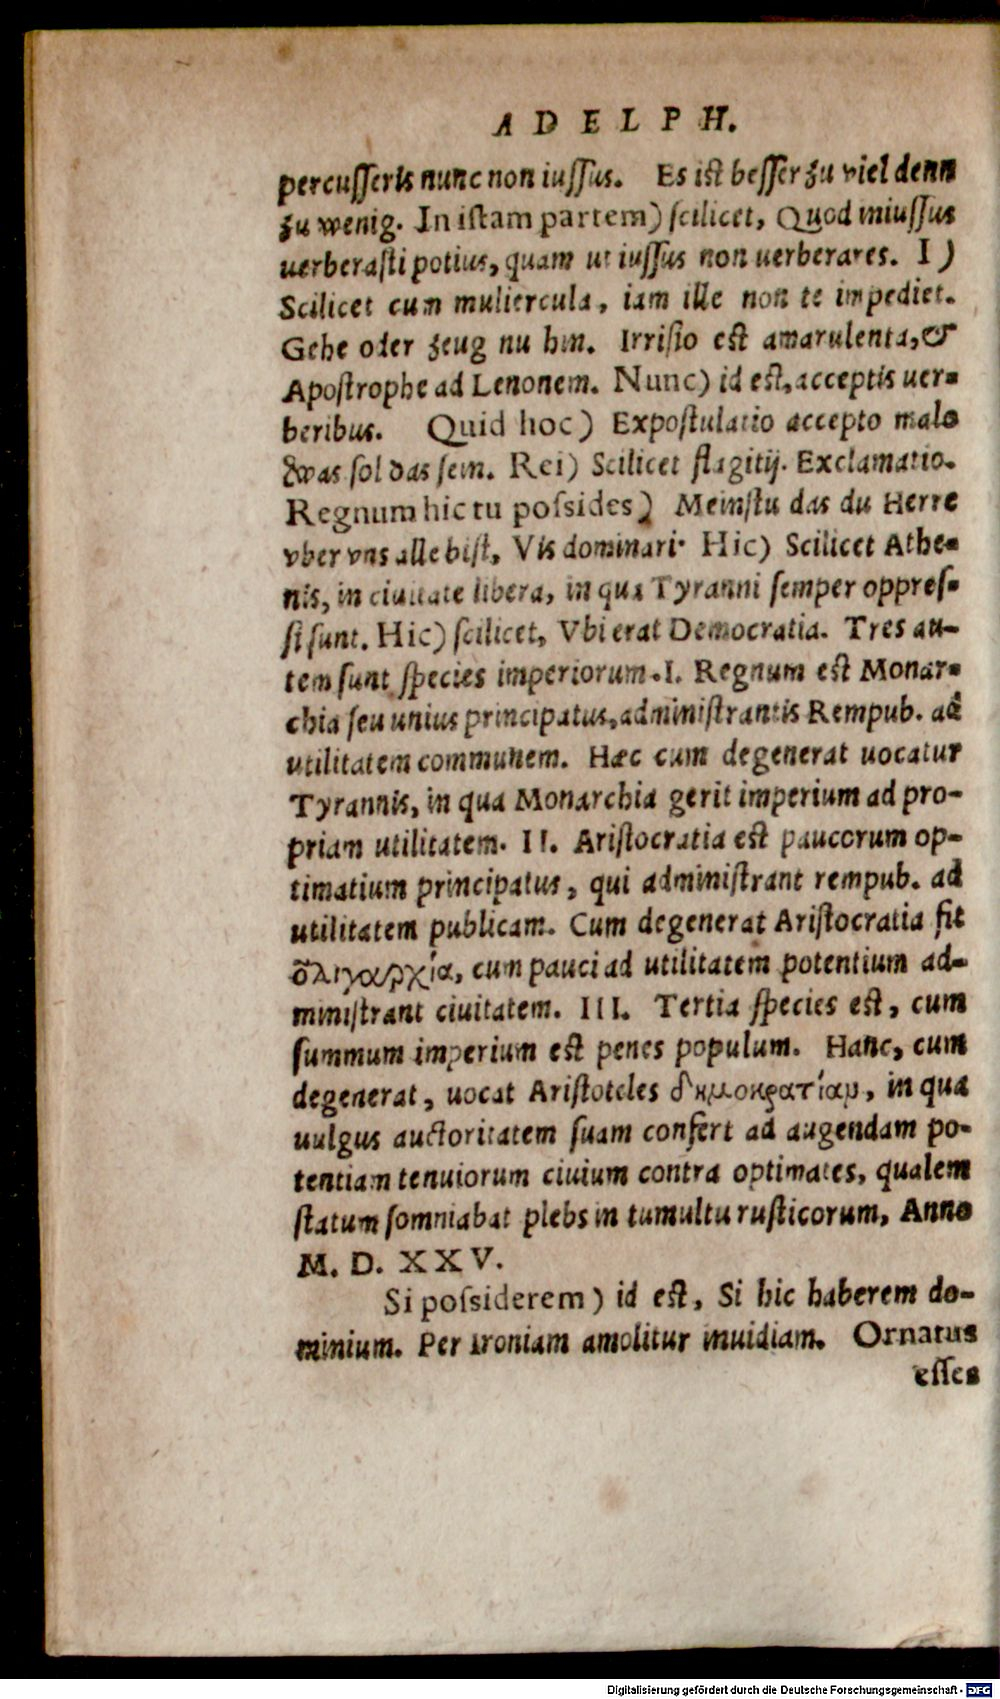 ADELPH.
percusseris nunc non iussus. Es ist besser zu viel denn
zu wenig. In istam partem) scilicet, Quod iniussus
uerberasti potius, quam ut iussus non uerberares. I)
Scilicet cum muliercula, iam ille non te impediet.
Gehe oder zeug nu hin. Irrisio est amarulenta, &
Apostrophe ad Lenonem. Nunc) id est, acceptis uer-
beribus. Quid hoc) Expostulatio accepto malo
was sol das sein. Rei) Scilicet flagitij. Exclamatio.
Regnum hic tu possides) Meinstu das du Herre
vber vns alle bist, Vis dominari. Hic) Scilicet Athe-
nis, in ciuitate libera, in qua Tyranni semper oppres-
si sunt. Hic) scilicet, Vbi erat Democratia. Tres au-
tem sunt species imperiorum. I. Regnum est Monar-
chia seu unius principatus, administrantis Rempub. ad
utilitatem communem. Hæc cum degenerat uocatur
Tyrannis, in qua Monarchia gerit imperium ad pro-
priam utilitatem. II. Aristocratia est paucorum op-
timatium principatus, qui administrant rempub. ad
utilitatem publicam. Cum degenerat Aristocratia fit
ὀλιγαρχία, cum pauci ad utilitatem potentium ad-
ministrant ciuitatem. III. Tertia species est, cum
summum imperium est penes populum. Hanc, cum
degenerat, uocat Aristoteles δημοκρατίαμ, in qua
uulgus auctoritatem suam confert ad augendam po-
tentiam tenuiorum ciuium contra optimates, qualem
statum somniabat plebs in tumultu rusticorum, Anno
M. D. XXV.
Si possiderem) id est, Si hic haberem do-
minium. Per ironiam amolitur inuidiam. Ornatus
esses
Digitalisierung gefördert durch die Deutsche Forschungsgemeinschaft - DFG